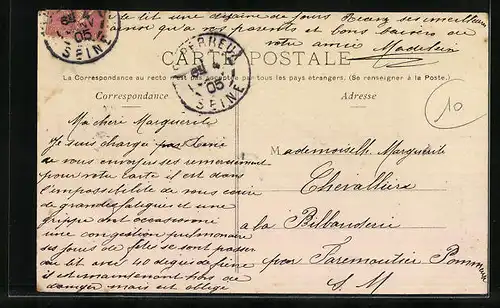 de lit une dizaine de jours Recevez ses meilleurs
ainsi qu'a vos parents et bons baisers de
votre amie Madeleine
CARTE POSTALE
La Correspondance au recto n'est pas acceptée par tous les pays étrangers. (Se renseigner à la Poste.)
Correspondance
Adresse
05
SEINE
LE PERREUX
05
SEINE
10
Ma chère Marguerite
Je suis chargée par
de vous envoyer ses remerciements
pour votre carte il est dans
l'impossibilité de vous écrire
de grandes fatigues et une
grippe ont occasionné
une congestion pulmonaire
ses jours de fête se sont passés
au lit avec 40 degrés de fièvre
il est maintenant hors de
danger mais est obligé
Mademoiselle Marguerite
Chevalliers
a la
par Faremoutier Pommeuse
S. M